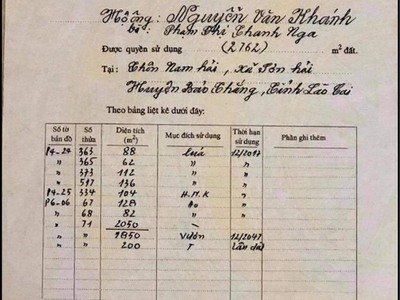 Hộ ông: Nguyễn Văn Khánh
bà: Phạm Thị Thanh Nga
Được quyền sử dụng (2762) m² đất.
Tại: Thôn Nam hải, Xã Sơn hải
Huyện Bảo Thắng, Tỉnh Lao Cai
Theo bảng liệt kê dưới đây:
Số tờ bản đồ Số thửa Diện tích (m²) Mục đích sử dụng Thời hạn sử dụng Phần ghi thêm
P4-24 363 88 Lúa 12/2017
" 365 62 " "
" 373 112 " "
" 517 136 " "
P4-25 334 104 H.M.K "
P6-06 67 128 Ao "
" 68 82 " "
" 71 2050 —
" " 1850 Vườn 12/2047
" " 200 T Lâu dài